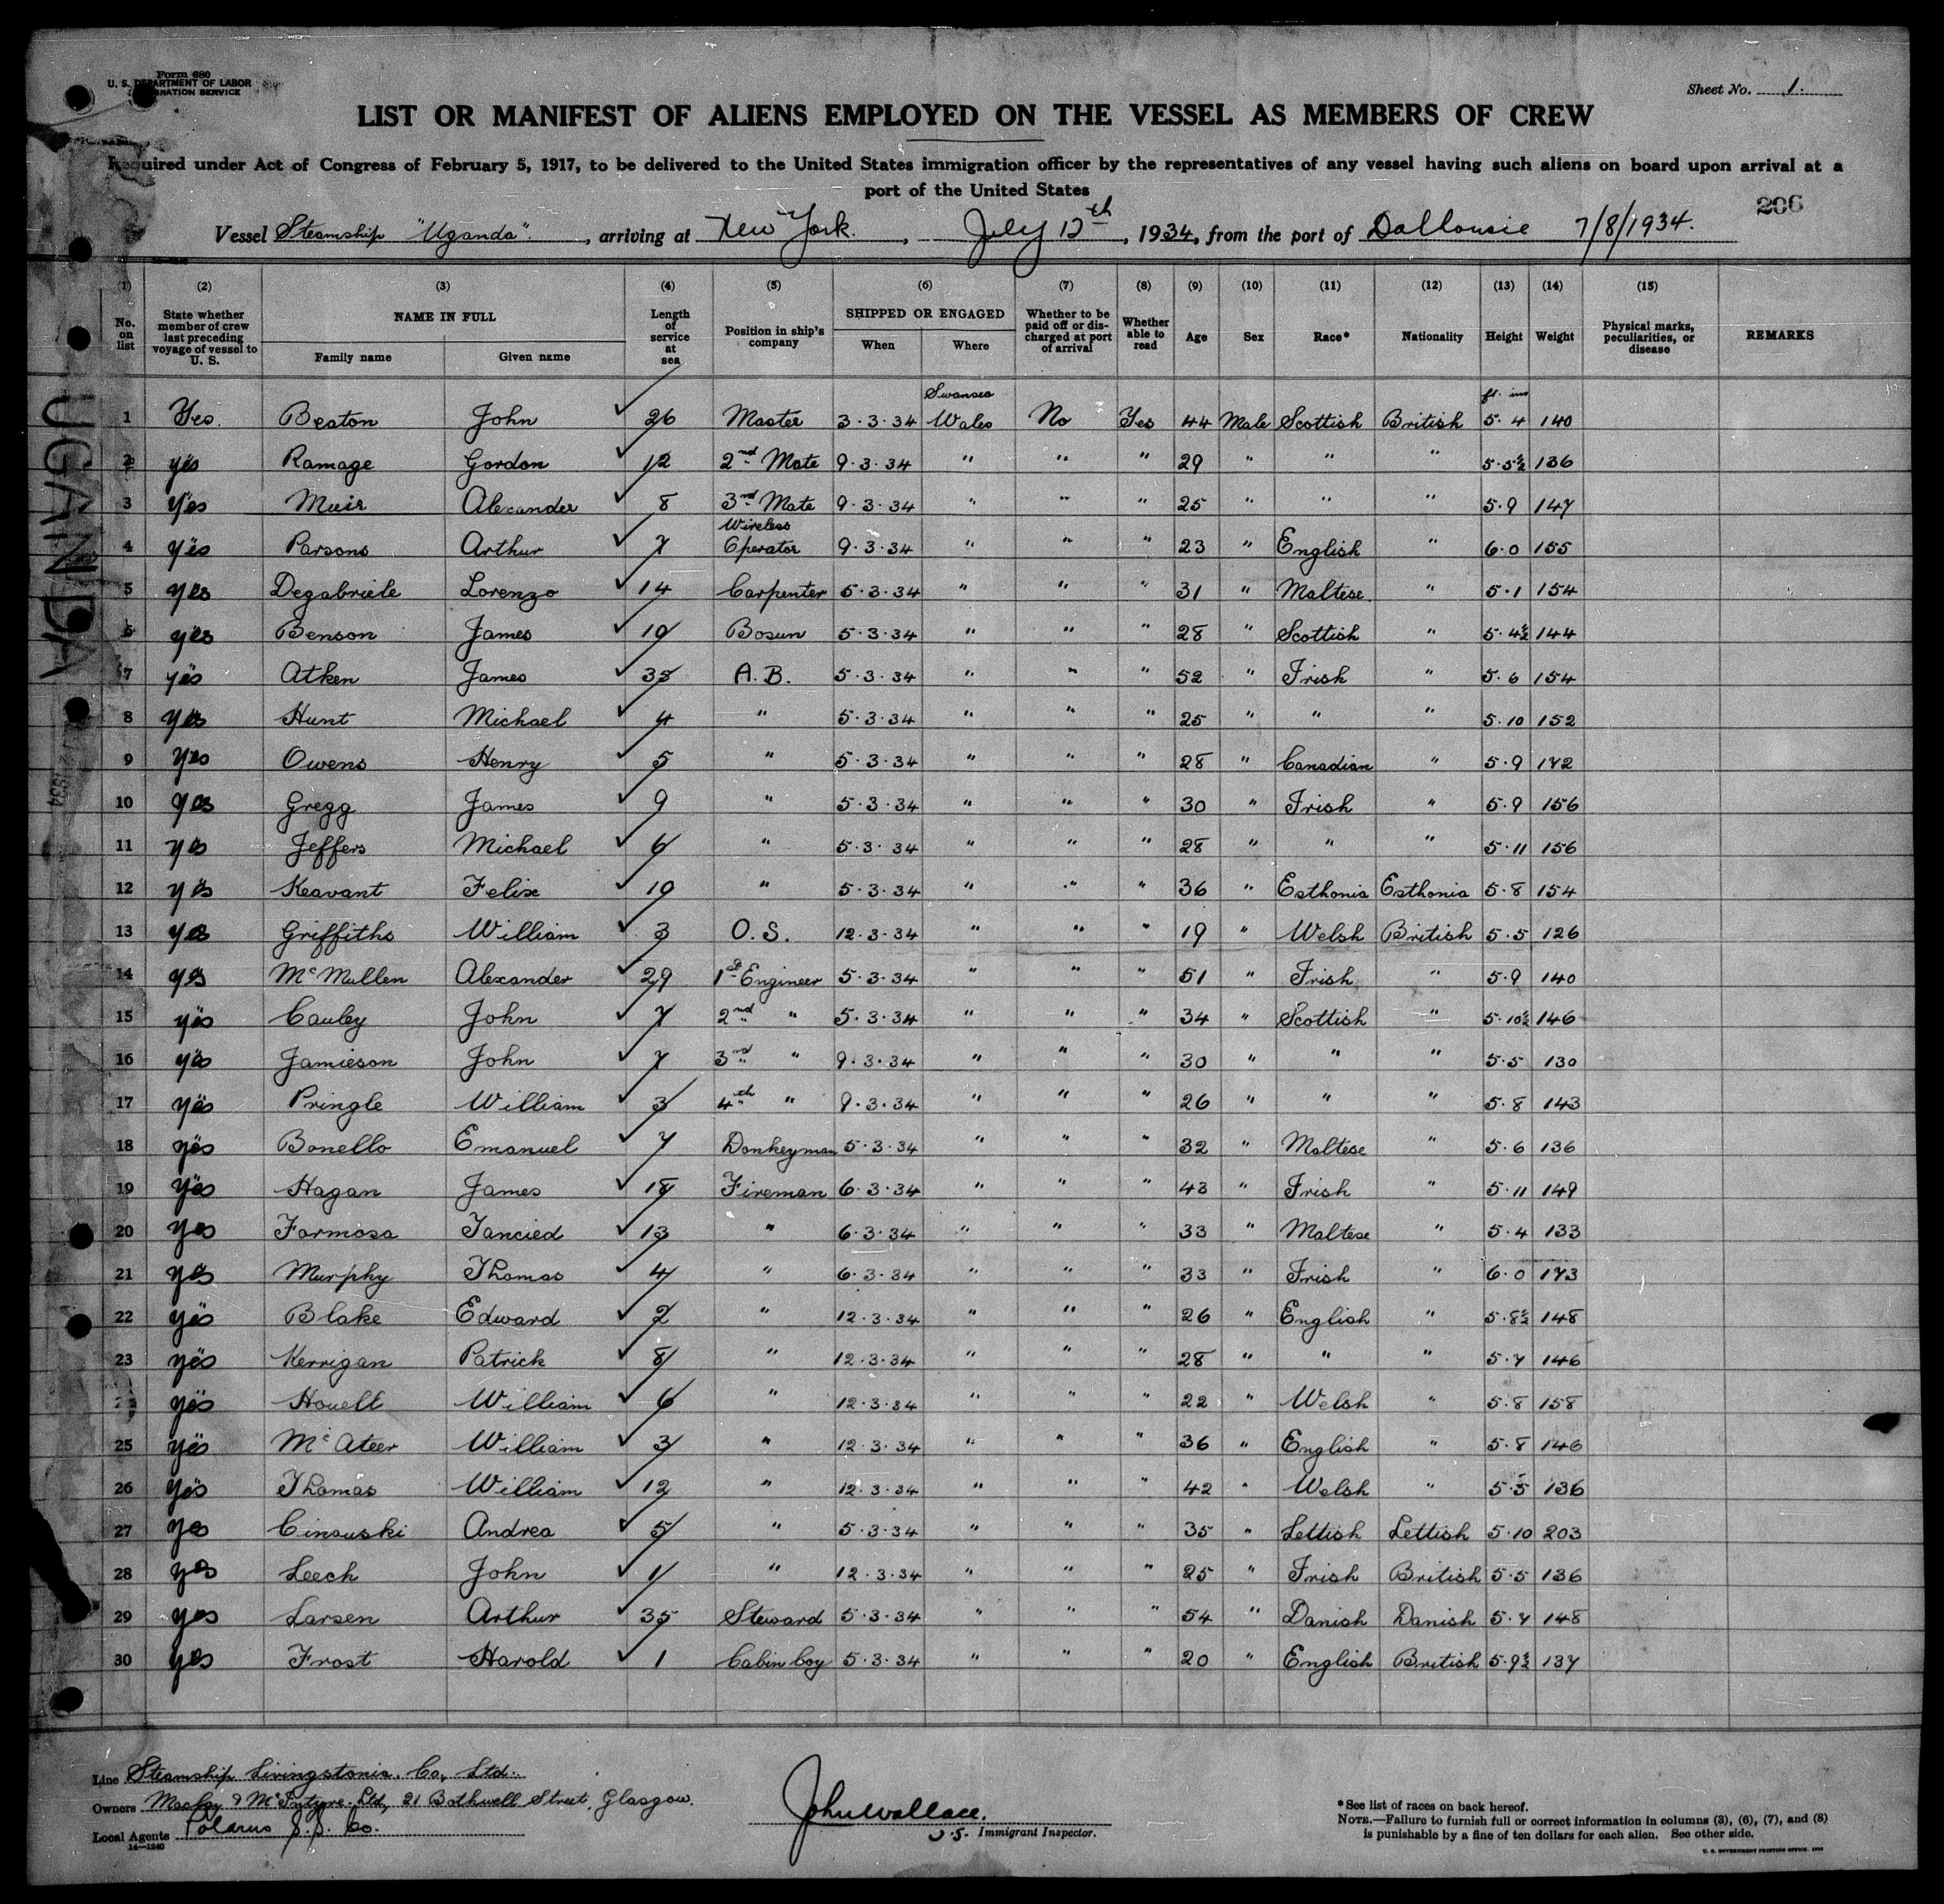 Form 680
U. S. DEPARTMENT OF LABOR
IMMIGRATION SERVICE
Sheet No. 1.
LIST OR MANIFEST OF ALIENS EMPLOYED ON THE VESSEL AS MEMBERS OF CREW
Required under Act of Congress of February 5, 1917, to be delivered to the United States immigration officer by the representatives of any vessel having such aliens on board upon arrival at a
port of the United States
206
Vessel Steamship "Uganda". , arriving at New York. , July 12th , 1934, from the port of Dalhousie 7/8/1934.
(1) (2) (3) (4) (5) (6) (7) (8) (9) (10) (11) (12) (13) (14) (15)
No. on list State whether member of crew last preceding voyage of vessel to U. S. NAME IN FULL Family name Given name Length of service at sea Position in ship's company SHIPPED OR ENGAGED When Where Whether to be paid off or discharged at port of arrival Whether able to read Age Sex Race* Nationality Height Weight Physical marks, peculiarities, or disease REMARKS
UGANDA
Swansea ft. ins
1 Yes. Beaton John ✓ 26 Master 3·3·34 Wales No Yes 44 Male Scottish British 5·4 140
2 yes Ramage Gordon ✓ 12 2nd Mate 9·3·34 " " " 29 " " " 5·5½ 136
3 Yes Muir Alexander ✓ 8 3rd Mate 9·3·34 " " " 25 " " " 5·9 147
4 yes Parsons Arthur ✓ 7 Wireless Operator 9·3·34 " " " 23 " English " 6·0 155
5 yes Degabriele Lorenzo ✓ 14 Carpenter 5·3·34 " " " 31 " Maltese. " 5·1 154
6 yes Benson James ✓ 10 Bosun 5·3·34 " " " 28 " Scottish " 5·4½ 144
7 yes Atken James ✓ 35 A.B. 5·3·34 " " " 52 " Irish " 5·6 154
8 yes Hunt Michael ✓ 4 " 5·3·34 " " " 25 " " " 5·10 152
9 Yes Owens Henry ✓ 5 " 5·3·34 " " " 28 " Canadian " 5·9 172
10 yes Gregg James ✓ 9 " 5·3·34 " " " 30 " Irish " 5·9 156
11 yes Jeffers Michael ✓ 6 " 5·3·34 " " " 28 " " " 5·11 156
12 yes Keavant Felix ✓ 10 " 5·3·34 " " " 36 " Esthonia Esthonia 5·8 154
13 yes Griffiths William ✓ 3 O.S. 12·3·34 " " " 19 " Welsh British 5·5 126
14 yes McMullen Alexander ✓ 29 1st Engineer 5·3·34 " " " 51 " Irish " 5·9 140
15 yes Cauley John ✓ 7 2nd " 5·3·34 " " " 34 " Scottish " 5·10½ 146
16 yes Jamieson John ✓ 7 3rd " 9·3·34 " " " 30 " " " 5·5 130
17 yes Pringle William ✓ 3 4th " 9·3·34 " " " 26 " " " 5·8 143
18 yes Bonello Emanuel ✓ 7 Donkeyman 5·3·34 " " " 32 " Maltese " 5·6 136
19 yes Hagan James ✓ 18 Fireman 6·3·34 " " " 43 " Irish " 5·11 149
20 yes Formosa Tancied ✓ 13 " 6·3·34 " " " 33 " Maltese " 5·4 133
21 yes Murphy Thomas ✓ 4 " 6·3·34 " " " 33 " Irish " 6·0 173
22 yes Blake Edward ✓ 2 " 12·3·34 " " " 26 " English " 5·8½ 148
23 yes Kerrigan Patrick ✓ 8 " 12·3·34 " " " 28 " " " 5·7 146
yes Howell William ✓ 6 " 12·3·34 " " " 22 " Welsh " 5·8 158
25 yes McAteer William ✓ 3 " 12·3·34 " " " 36 " English " 5·8 146
26 yes Thomas William ✓ 12 " 12·3·34 " " " 42 " Welsh " 5·5 136
27 yes Cinouski Andrea ✓ 5 " 5·3·34 " " " 35 " Lettish Lettish 5·10 203
28 yes Leech John ✓ 1 " 12·3·34 " " " 25 " Irish British 5·5 136
29 yes Larsen Arthur ✓ 35 Steward 5·3·34 " " " 54 " Danish Danish 5·7 148
30 yes Frost Harold ✓ 1 Cabin boy 5·3·34 " " " 20 " English British 5·9½ 137
Line Steamship Livingstonia. Co, Ltd.
Owners Maclay & McIntyre. Ltd, 21 Bothwell Street, Glasgow.
Local Agents Polarus S.S. Co.
14—1240
John Wallace.
U.S. Immigrant Inspector.
*See list of races on back hereof.
NOTE.—Failure to furnish full or correct information in columns (3), (6), (7), and (8)
is punishable by a fine of ten dollars for each alien. See other side.
U. S. GOVERNMENT PRINTING OFFICE